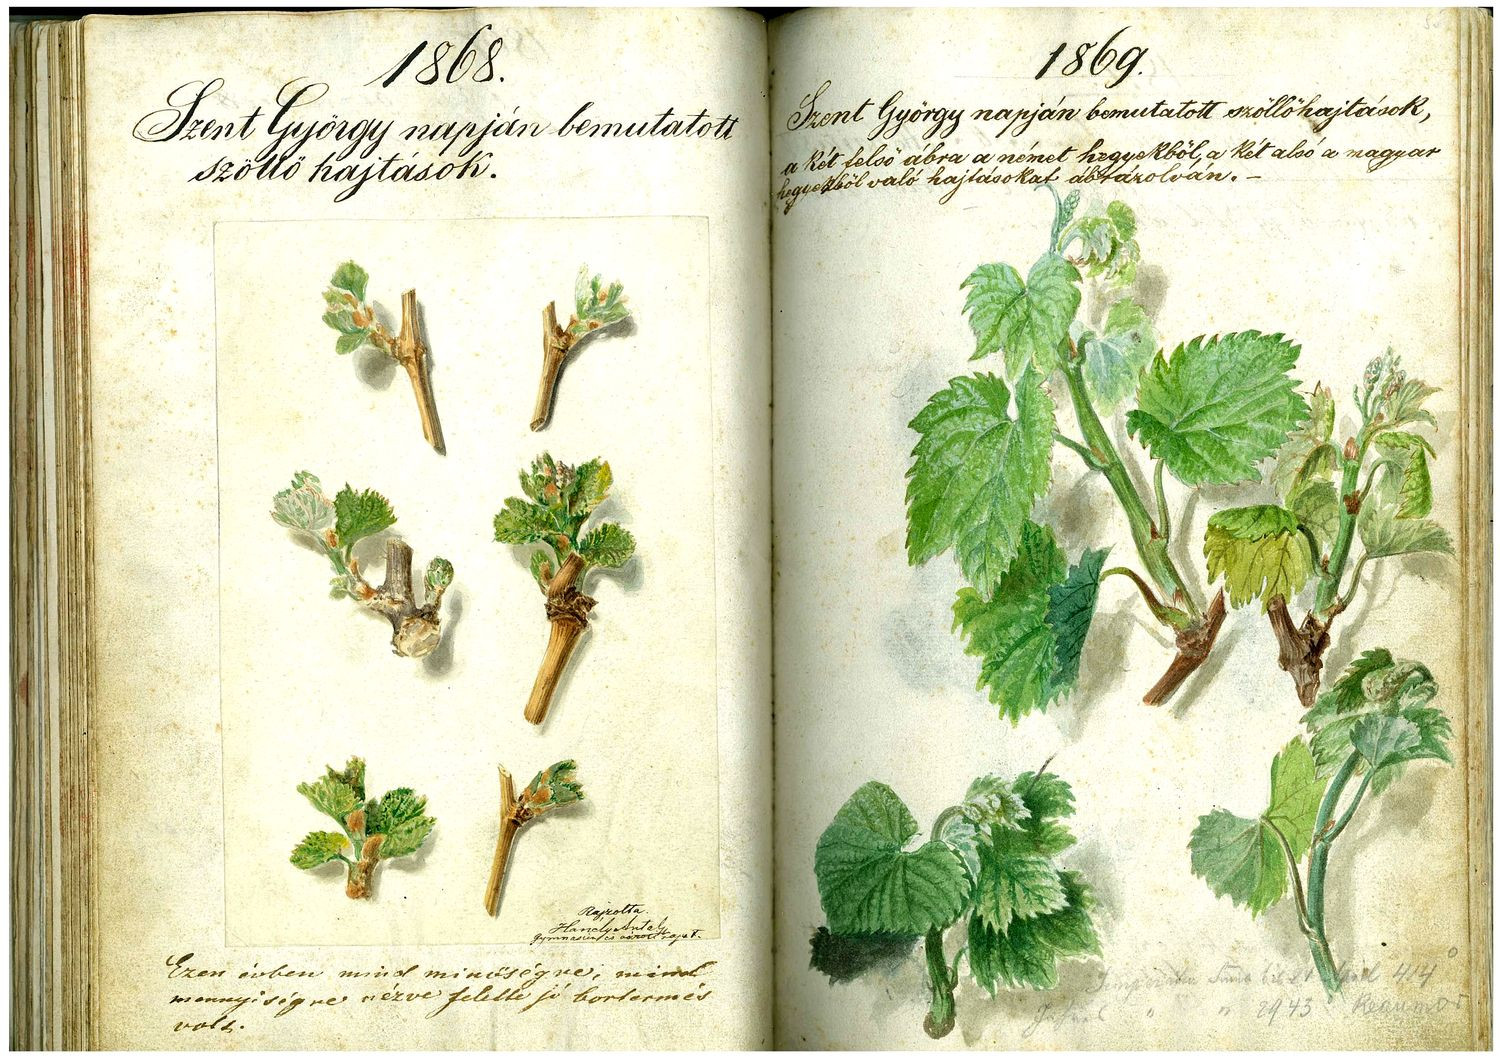 1868.
Szent György napján bemutatott
szöllő hajtások.
Rajzolta.
Hanély Antal,
Ezen évben mind minőségre, mind
mennyiségre nézve felette jó bortermés
volt.
1869.
Szent György napján bemutatott szöllőhajtások,
a két felső ábra a német hegyekből, a két alsó a magyar
hegyekből való hajtásokat ábrázolván. –
Temperatur bis 24 April 414°
" " 2943 Reaumur